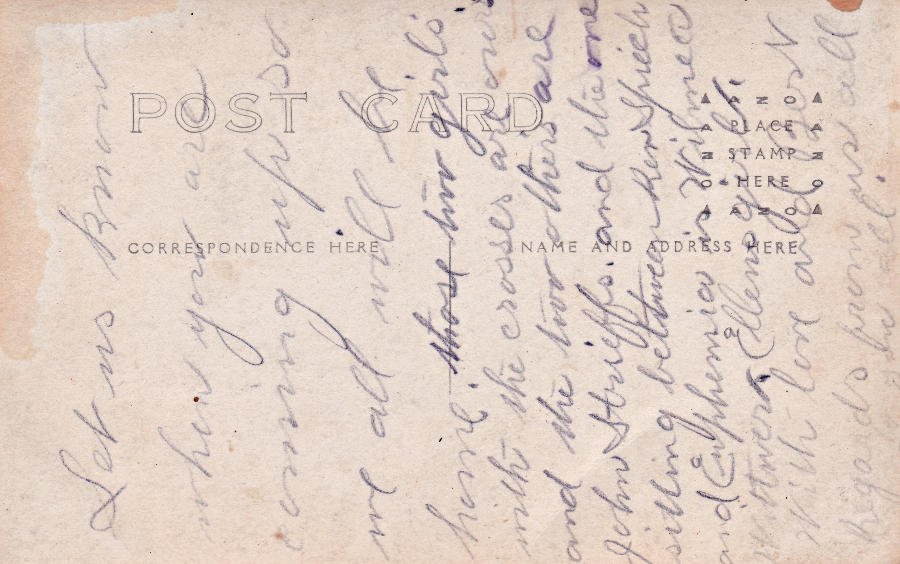 POST CARD
CORRESPONDENCE HERE
NAME AND ADDRESS HERE
AZO
PLACE
STAMP
HERE
AZO
Let us know
when you are
coming up so
we all will be
home. those two girls
with the crosses are ours
and the two others are
John Streiffs. and the one
sitting between Rev Speich
and Euphemia is Wilmer
Ellens girl.
With love and best
Regards from us all
to all.